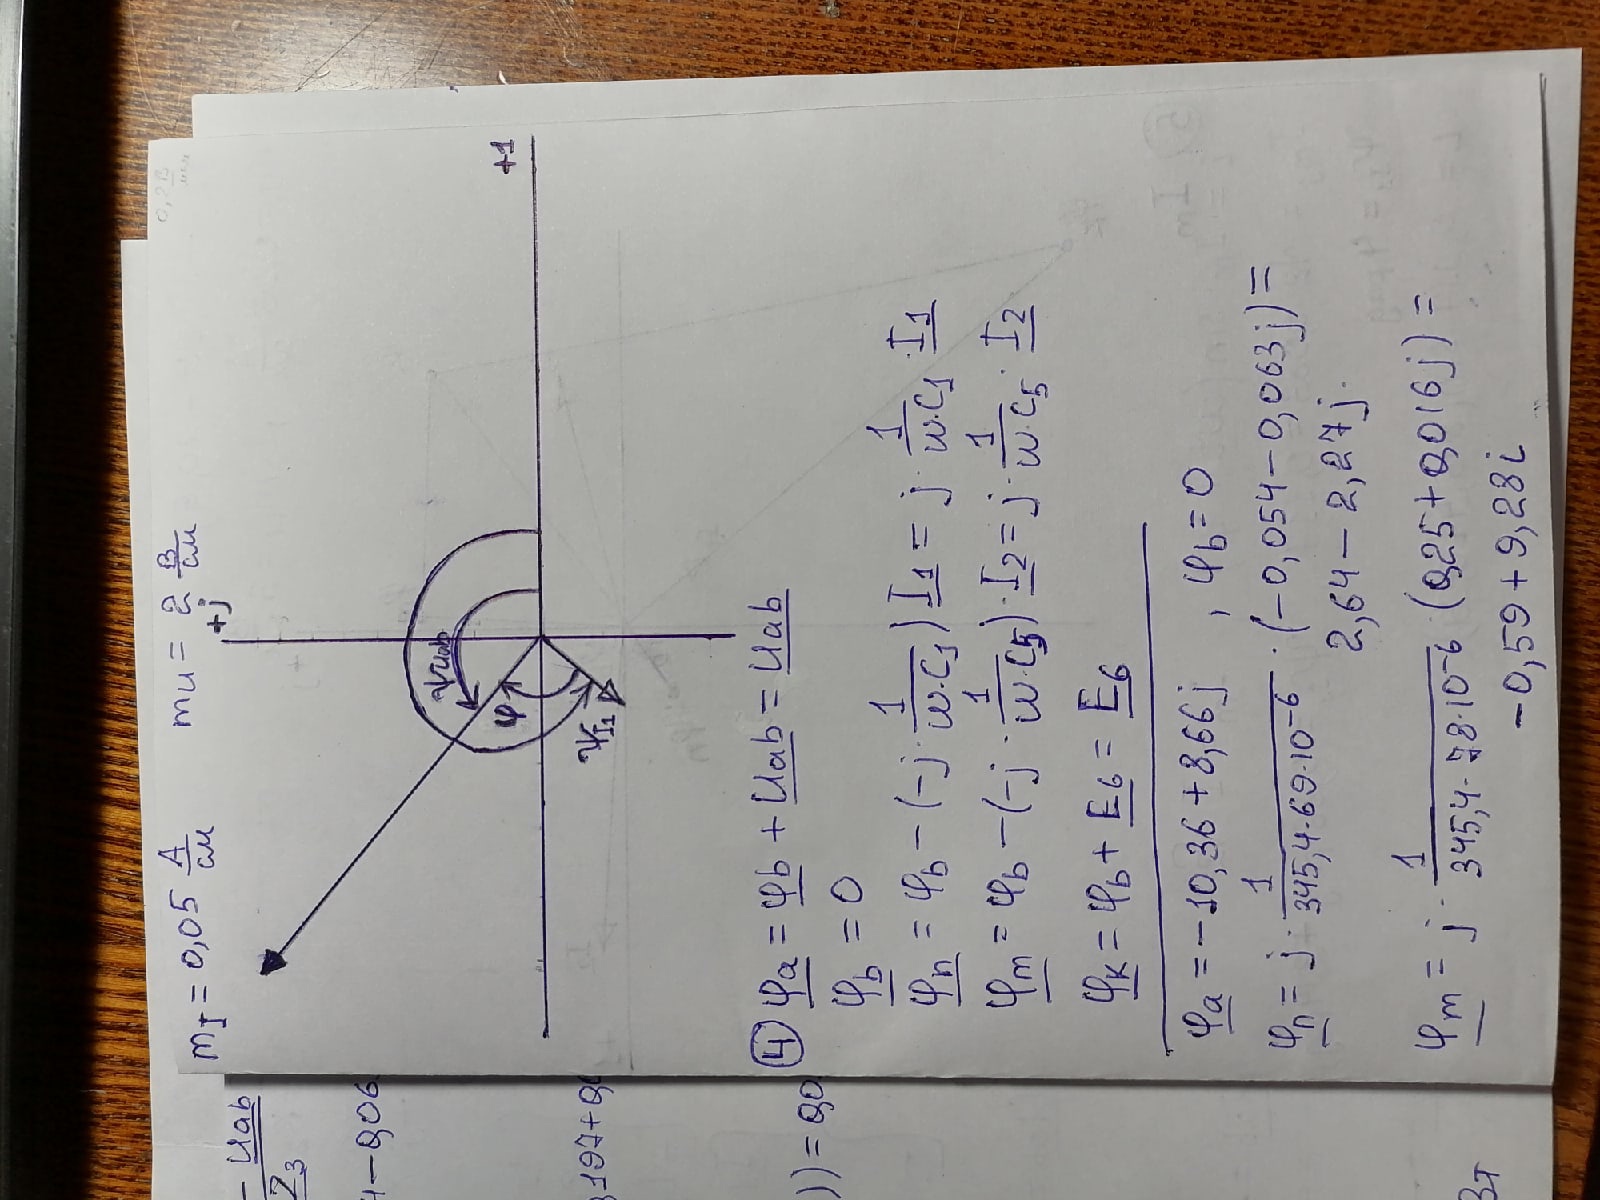 0,2 В/мм
m_I = 0,05 А/см   m_U = 2 В/см
+j
+1
ψUab
φ
ψI1
④ φa = φb + Uab = Uab
φb = 0
φn = φb − (−j · 1/(ω·C1)) I1 = j · 1/(ω·C1) · I1
φm = φb − (−j · 1/(ω·C5)) · I2 = j · 1/(ω·C5) · I2
φk = φb + E6 = E6
φa = −10,36 + 8,66j , φb = 0
φn = j · 1/(345,4·69·10⁻⁶) · (−0,054 − 0,063j) =
2,64 − 2,27j.
φm = j · 1/(345,4·78·10⁻⁶) · (0,25 + 0,016j) =
−0,59 + 9,28i
− Uab
Z3
4 − 0,06
197 + 0,
)) = 0,0